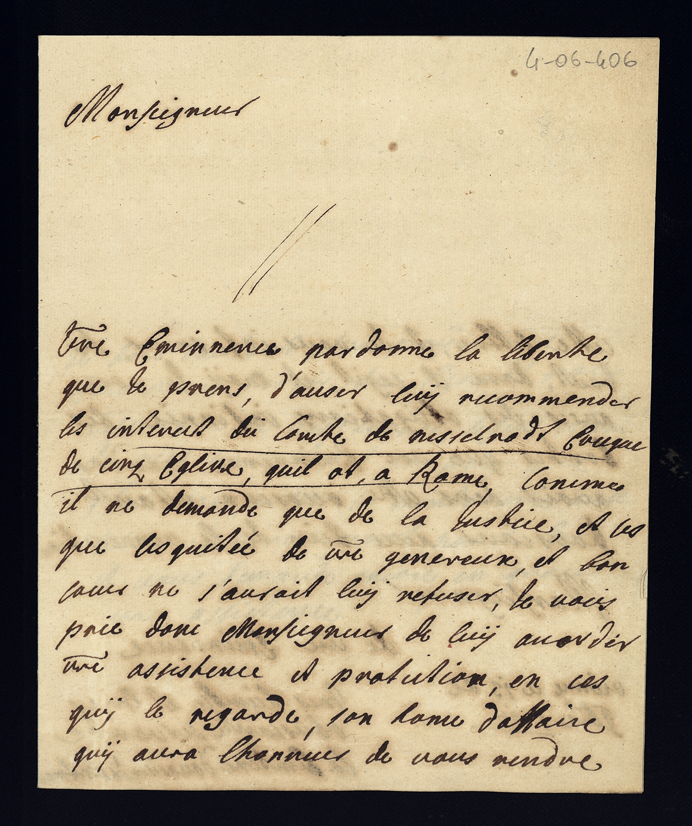 4-06-406
Monseigneur
Vre Eminnence pardonne la liberte
que Je prens, d'auser luÿ recommender
les interest du Comte de nesselrodt Eveque
de cinq Eglise, quil at, a Rome, Comme
il ne demande que de la Justice, et ces
que lesquitéé de vre genereux, et bon
coeur ne s'aurait luÿ refuser, Je vous
prie donc Monseigneur de luÿ accorder
vre assistence et protection, en ces
quÿ le regarde, son home d'affaire
quÿ aura lhonneur de vous rendre